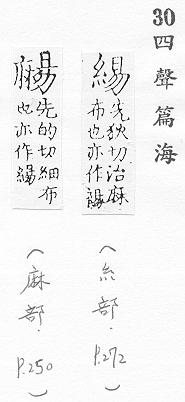 30 四聲篇海
緆
先狄切治麻
布也亦作
(糸部. P.272)
先的切細布
也亦作緆
(麻部. P.250)